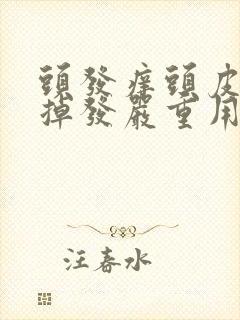 頭發癢頭皮
掉發嚴重用
汪春水